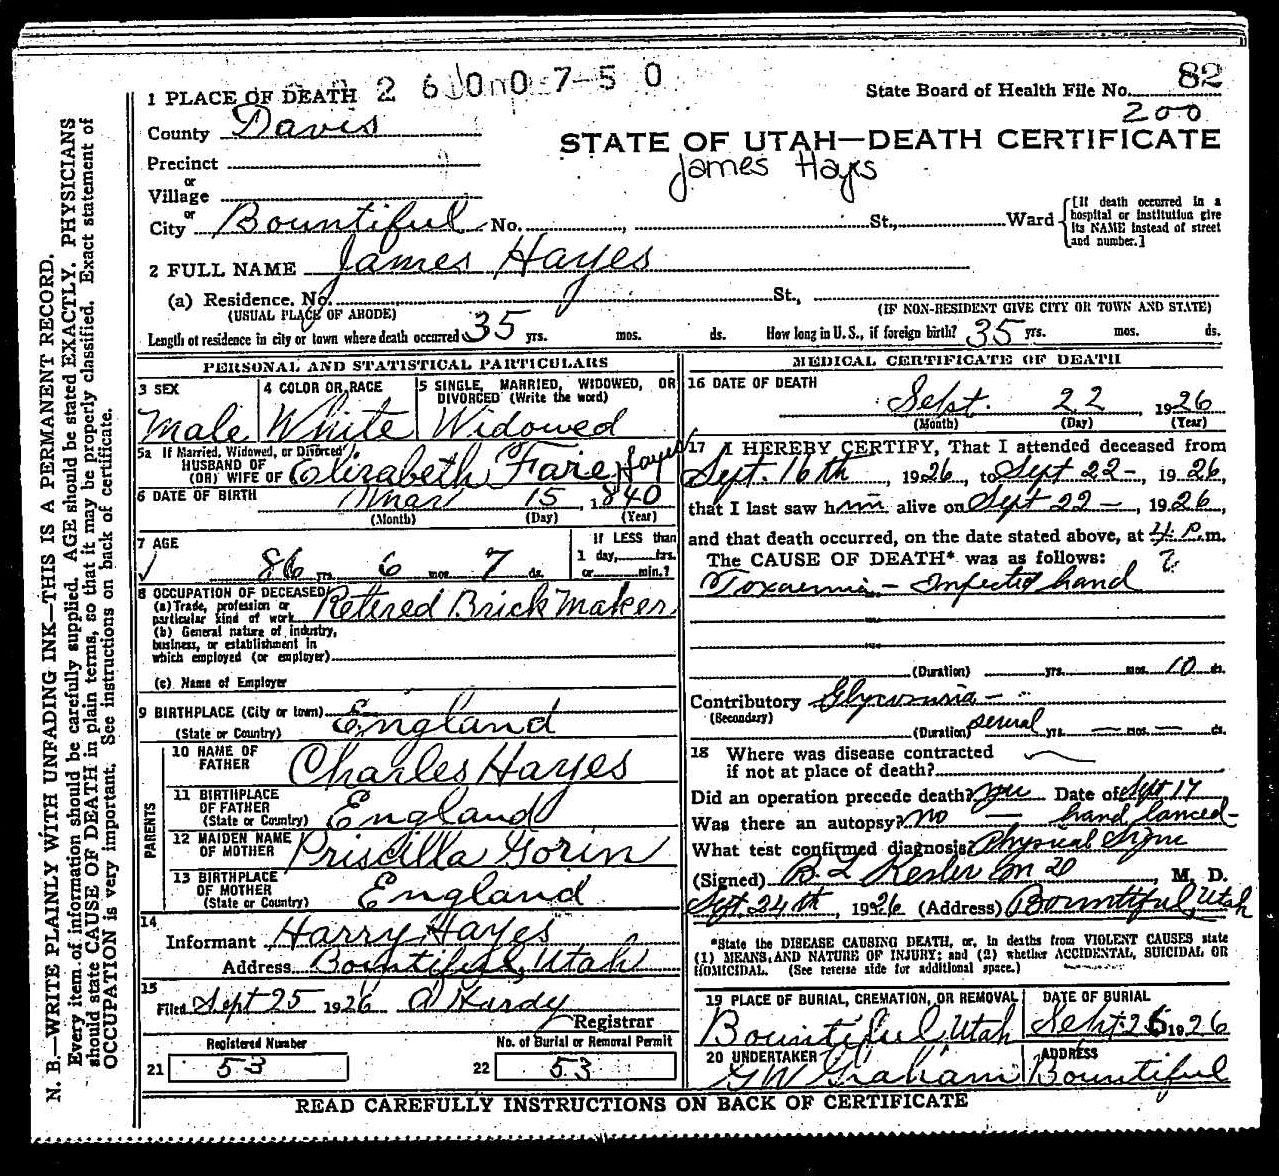 82
State Board of Health File No.
200
1 PLACE OF DEATH 2 6 0 0 7 5 0
County Davis
STATE OF UTAH—DEATH CERTIFICATE
James Hays
Precinct
or
Village
or
City Bountiful No. , St., Ward
[If death occurred in a hospital or institution give its NAME instead of street and number.]
2 FULL NAME James Hayes
(a) Residence. No. St.,
(USUAL PLACE OF ABODE) (IF NON-RESIDENT GIVE CITY OR TOWN AND STATE)
Length of residence in city or town where death occurred 35 yrs. mos. ds. How long in U.S., if foreign birth? 35 yrs. mos. ds.
PERSONAL AND STATISTICAL PARTICULARS
3 SEX
Male
4 COLOR OR RACE
White
5 SINGLE, MARRIED, WIDOWED, OR DIVORCED (Write the word)
Widowed
5a If Married, Widowed, or Divorced
HUSBAND OF
(OR) WIFE OF Elizabeth Fare Hayes
6 DATE OF BIRTH Mar 15, 1840
(Month) (Day) (Year)
7 AGE
86 yrs. 6 mos. 7 ds.
If LESS than
1 day, hrs.
or min.?
8 OCCUPATION OF DECEASED
(a) Trade, profession or
particular kind of work Retired Brick Maker
(b) General nature of industry,
business, or establishment in
which employed (or employer)
(c) Name of Employer
9 BIRTHPLACE (City or town)
(State or Country) England
PARENTS
10 NAME OF FATHER Charles Hayes
11 BIRTHPLACE OF FATHER
(State or Country) England
12 MAIDEN NAME OF MOTHER Priscilla Gorin
13 BIRTHPLACE OF MOTHER
(State or Country) England
14
Informant Harry Hayes
Address Bountiful, Utah
15
Filed Sept 25 1926 A Hardy
Registrar
Registered Number No. of Burial or Removal Permit
21 53 22 53
MEDICAL CERTIFICATE OF DEATH
16 DATE OF DEATH
Sept. 22, 1926
(Month) (Day) (Year)
17 I HEREBY CERTIFY, That I attended deceased from
Sept. 16th, 1926, to Sept 22-, 1926,
that I last saw him alive on Sept 22-, 1926,
and that death occurred, on the date stated above, at 4 P.m.
The CAUSE OF DEATH* was as follows: ?
Toxaemia - Infected hand
(Duration) yrs. mos. 10 ds.
Contributory Glycosuria -
(Secondary)
(Duration) several yrs. mos. ds.
18 Where was disease contracted
if not at place of death?
Did an operation precede death? yes Date of Sept 17
Was there an autopsy? no — hand lanced-
What test confirmed diagnosis? Physical Signs
(Signed) B. L Kesler M D, M. D.
Sept. 24th, 1926 (Address) Bountiful, Utah
*State the DISEASE CAUSING DEATH, or, in deaths from VIOLENT CAUSES state
(1) MEANS AND NATURE OF INJURY; and (2) whether ACCIDENTAL, SUICIDAL OR
HOMICIDAL. (See reverse side for additional space.)
19 PLACE OF BURIAL, CREMATION, OR REMOVAL DATE OF BURIAL
Bountiful Utah Sept. 26 1926
20 UNDERTAKER ADDRESS
GW Graham Bountiful
READ CAREFULLY INSTRUCTIONS ON BACK OF CERTIFICATE
N. B.—WRITE PLAINLY WITH UNFADING INK—THIS IS A PERMANENT RECORD.
Every item of information should be carefully supplied. AGE should be stated EXACTLY. PHYSICIANS
should state CAUSE OF DEATH in plain terms, so that it may be properly classified. Exact statement of
OCCUPATION is very important. See instructions on back of certificate.